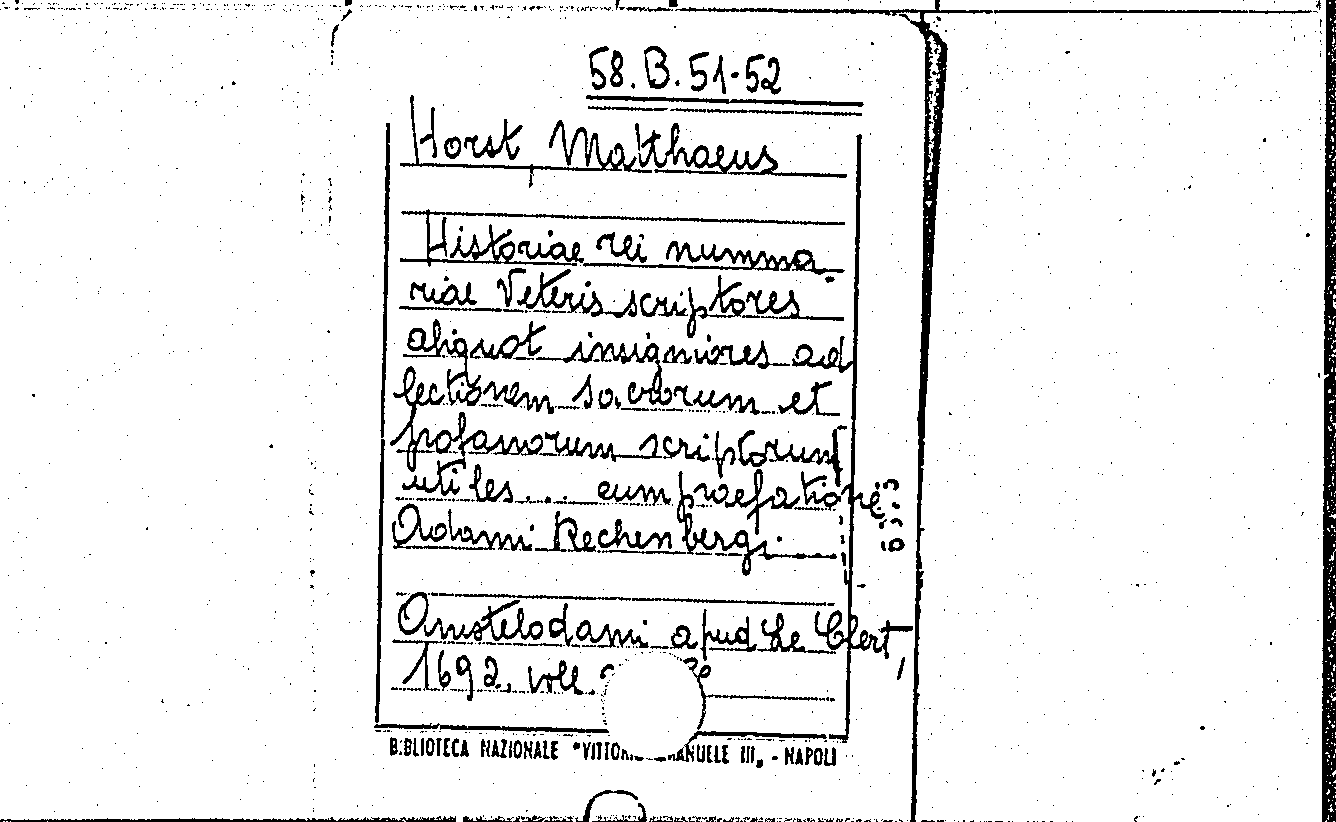 58.B.51-52
Horst, Matthaeus
Historiae rei numma-
riae Veteris scriptores
aliquot insigniores ad
lectionem sacrorum et
profanorum scriptorum
utiles... cum praefatione
Adami Rechenbergi.
Amstelodami apud Le Clert,
1692, voll.
BIBLIOTECA NAZIONALE "VITTORIO EMANUELE III" - NAPOLI